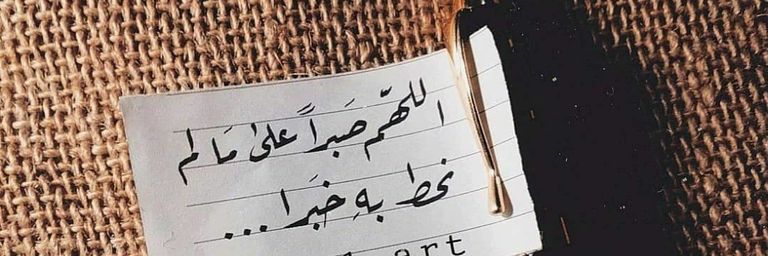 اللهمّ صَبراً على مَا لم
نحط بهِ خبَرا ...
art